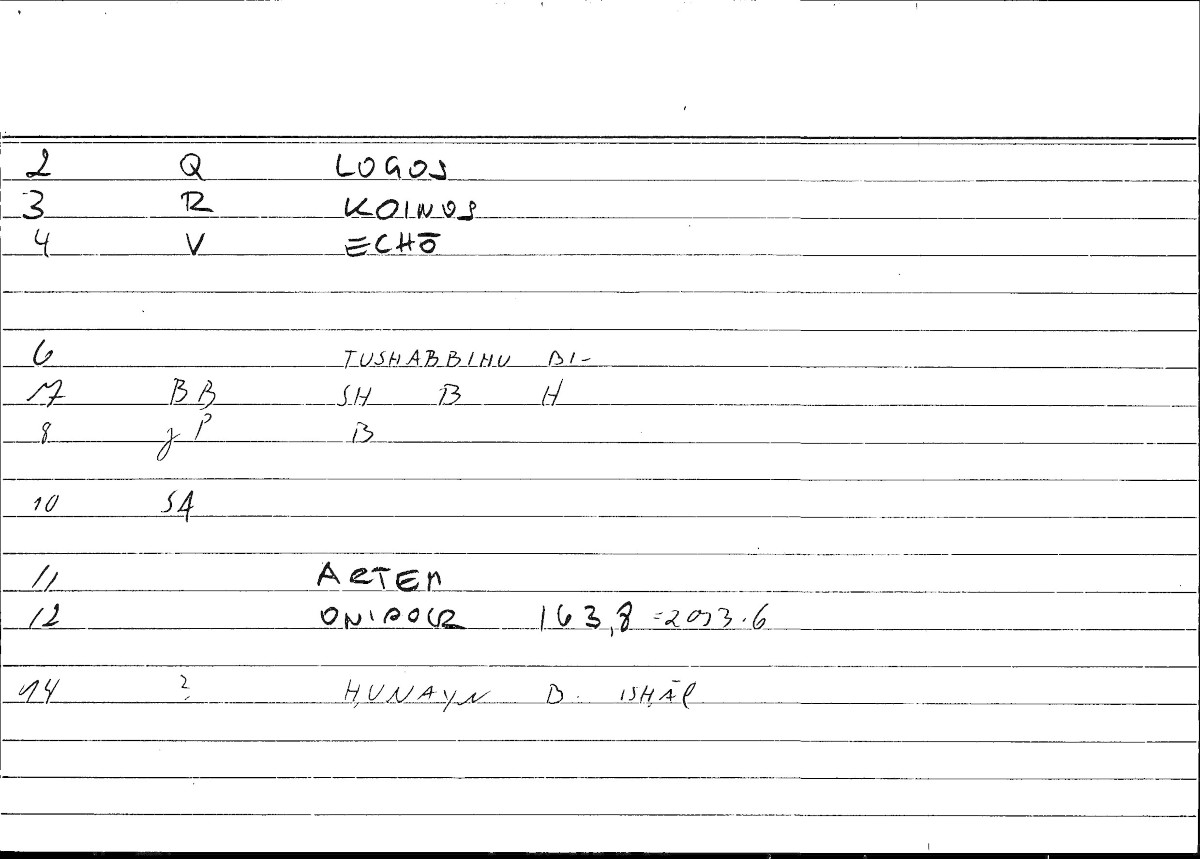 2 Q LOGOS
3 R KOINOS
4 V ECHŌ
6 TUSHABBIHU BI-
7 BB SH B H
8 gP B
10 SA
11 ARTEM
12 ONIROCR 163,8 =203.6
14 ? ḤUNAYN B. ISḤĀQ